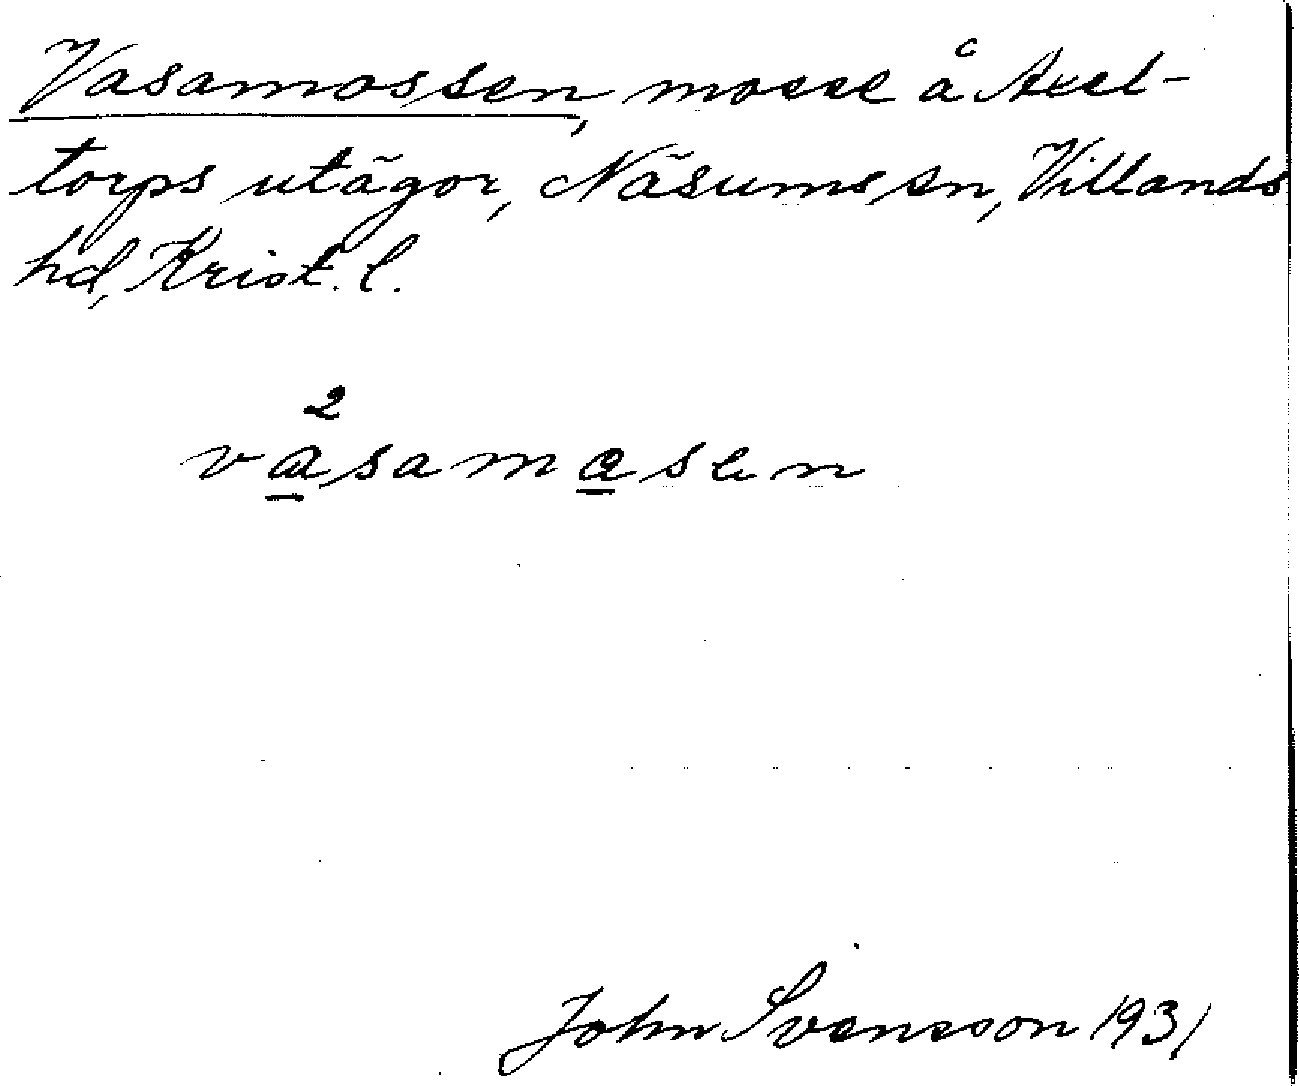 Vasamossen, mosse å Axel-
torps utägor, Näsums sn, Villands
hd, Krist. l.
2
vasamosen
John Svensson 1931